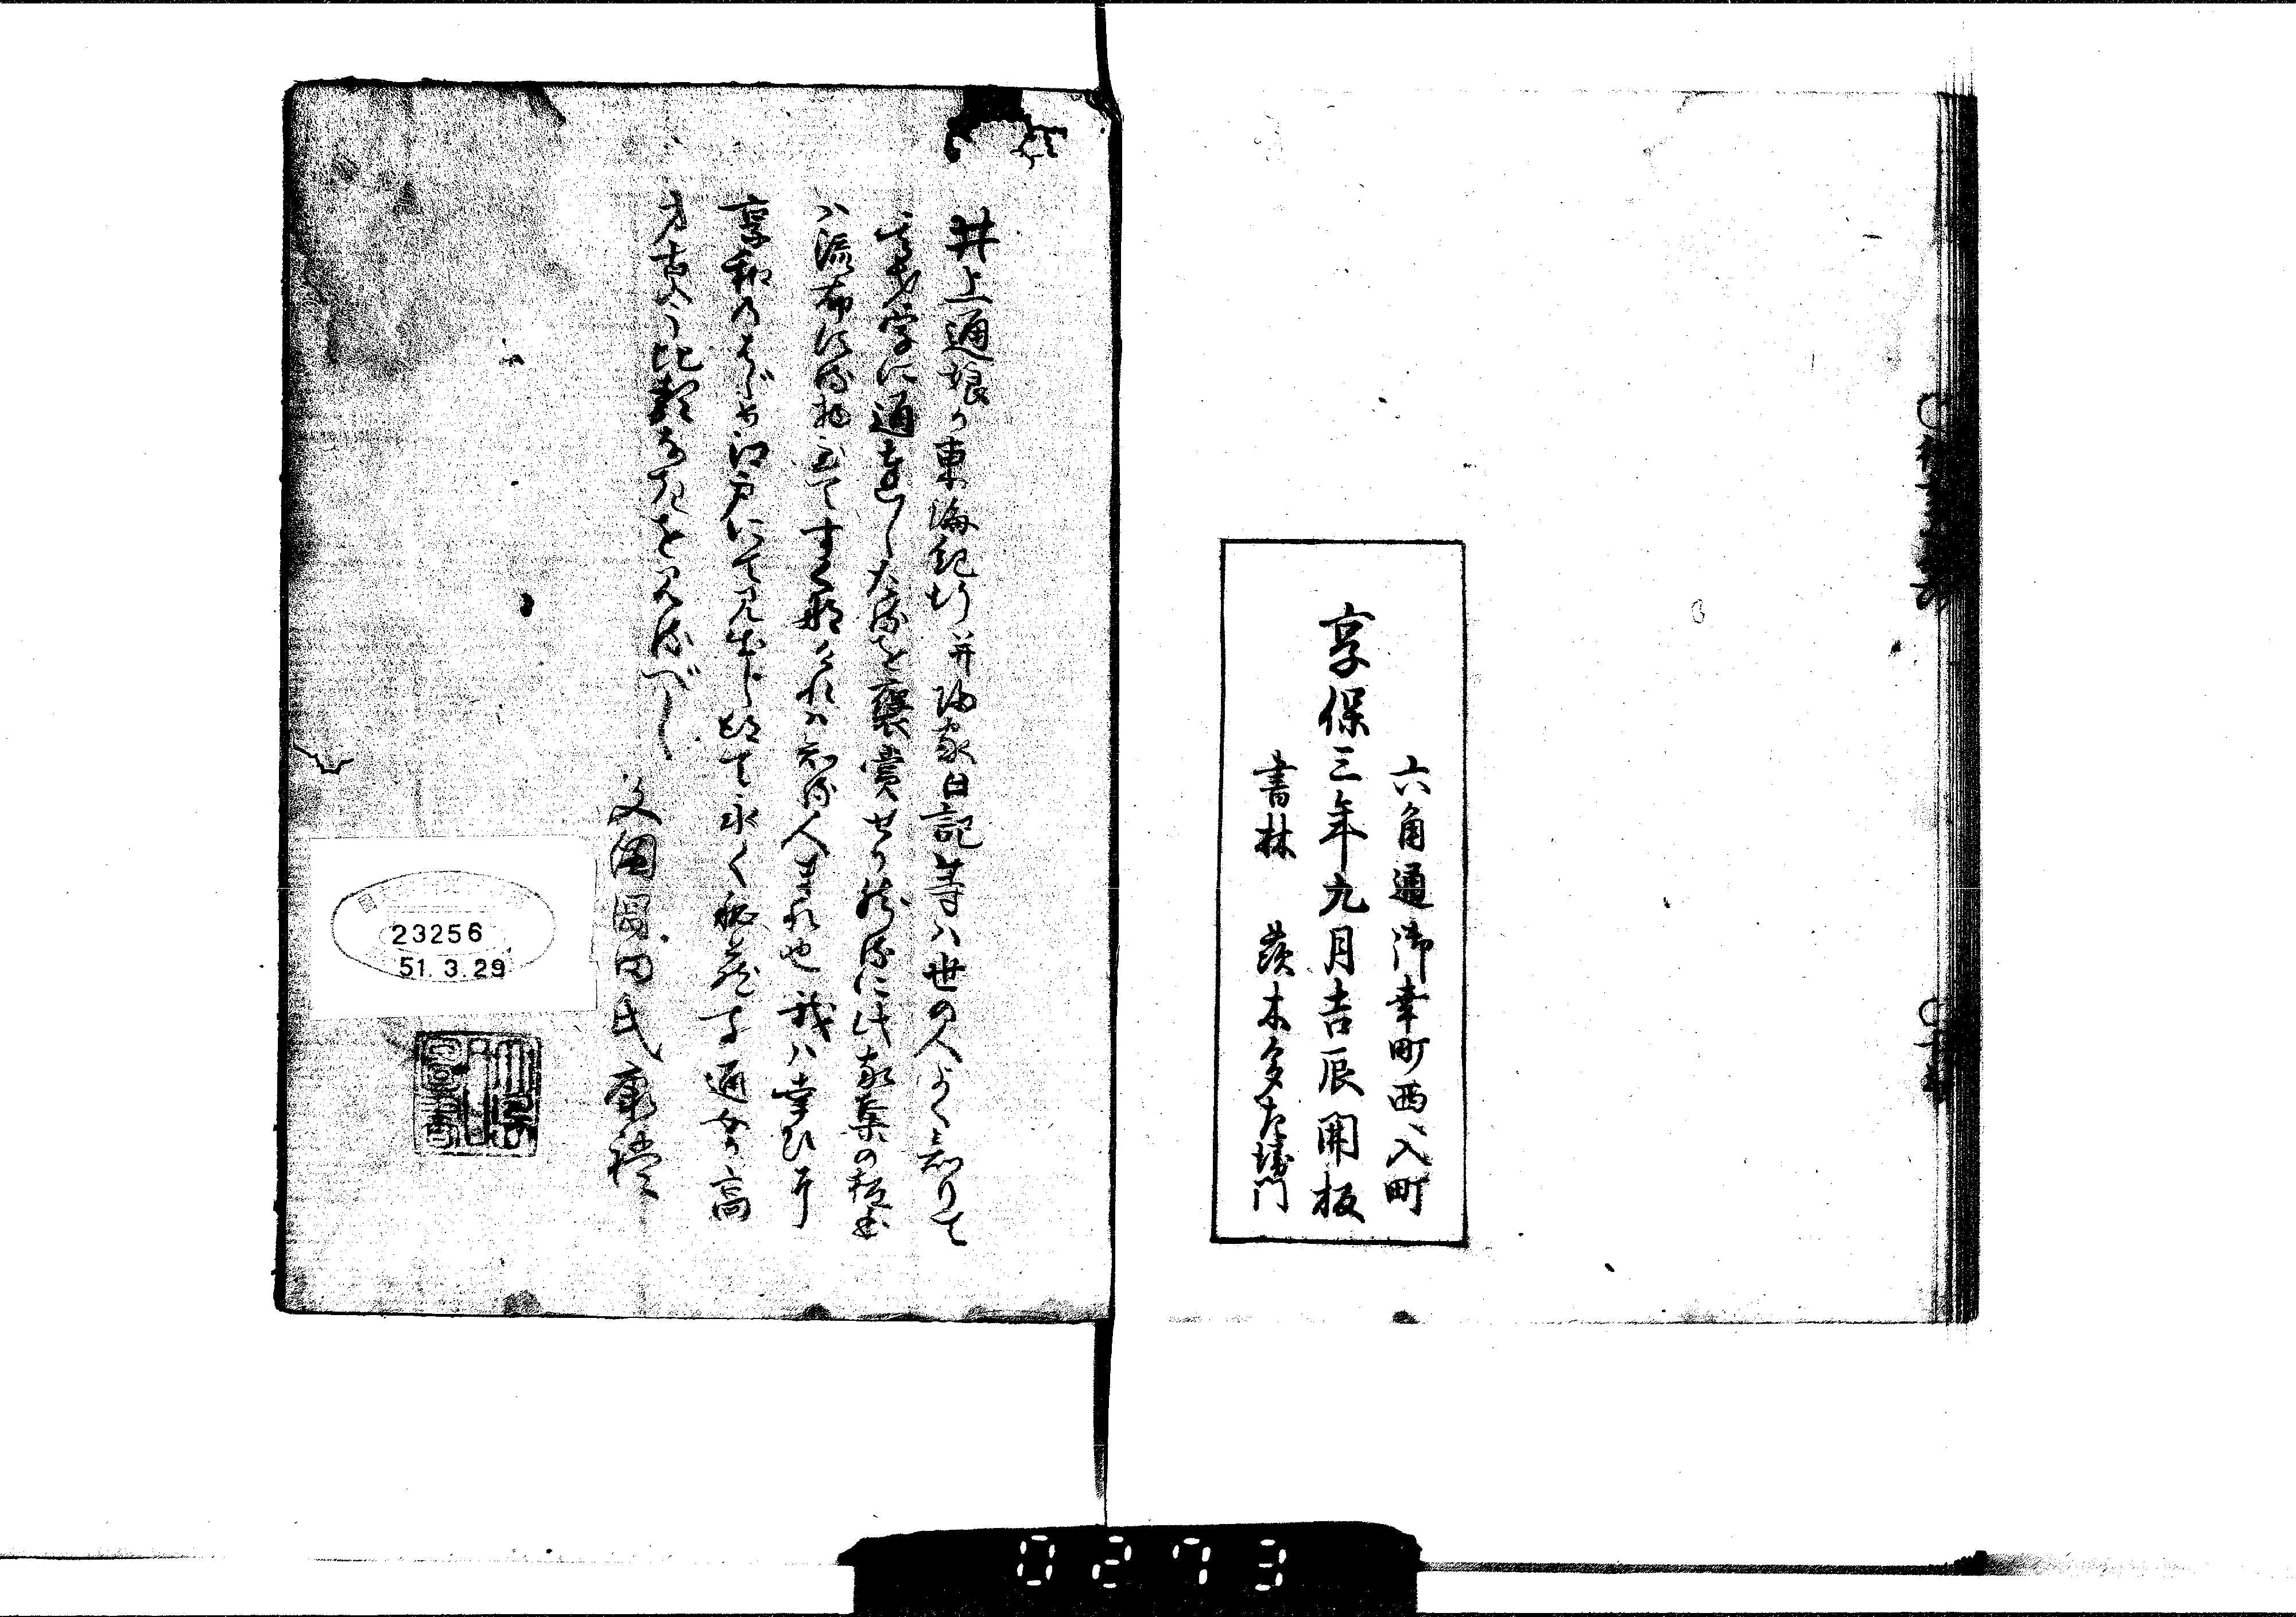 六角通御幸町西入町
享保三年九月吉辰開板
書林 茨木多左衛門
井上通娘か東海紀行并帰家日記等ハ世の人よく知りて
文学に通達したるを褒賞せり然るに此家葉の板本
ハ流布に至てすくなけれハ知る人まれ也我ハ幸ひ
享和のはじめ江戸にて見出し求て永く秘蔵す通女か高
才古今に比類なきを見るべし
文園岡田氏
23256
51.3.29
0273